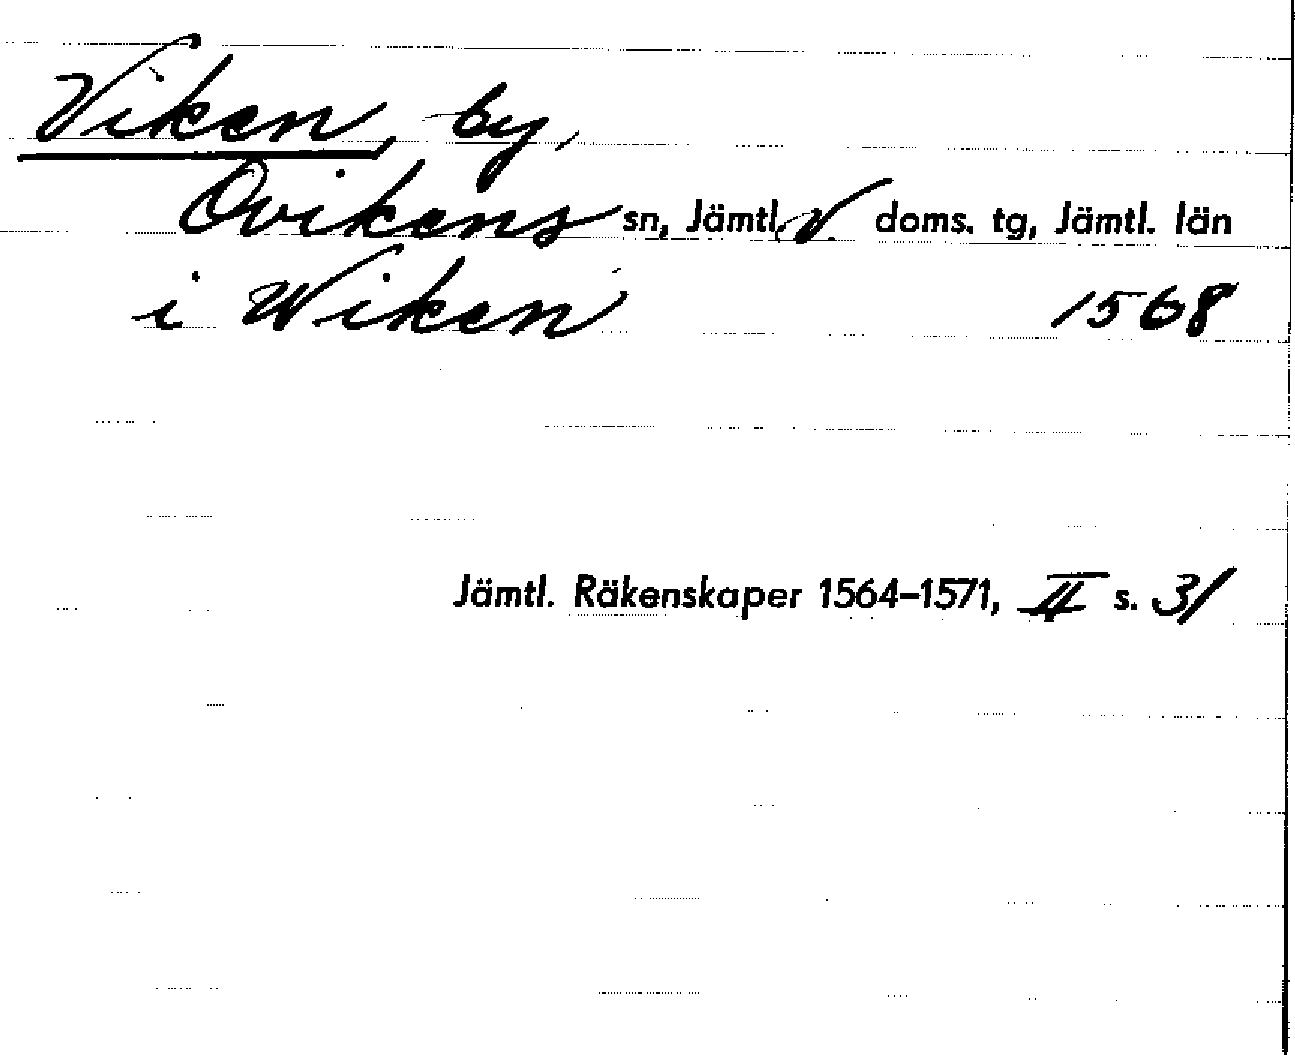 Viken, by,
Ovikens sn, Jämtl. V. doms. tg, Jämtl. län
i Wiken 1568
Jämtl. Räkenskaper 1564–1571, II s. 31